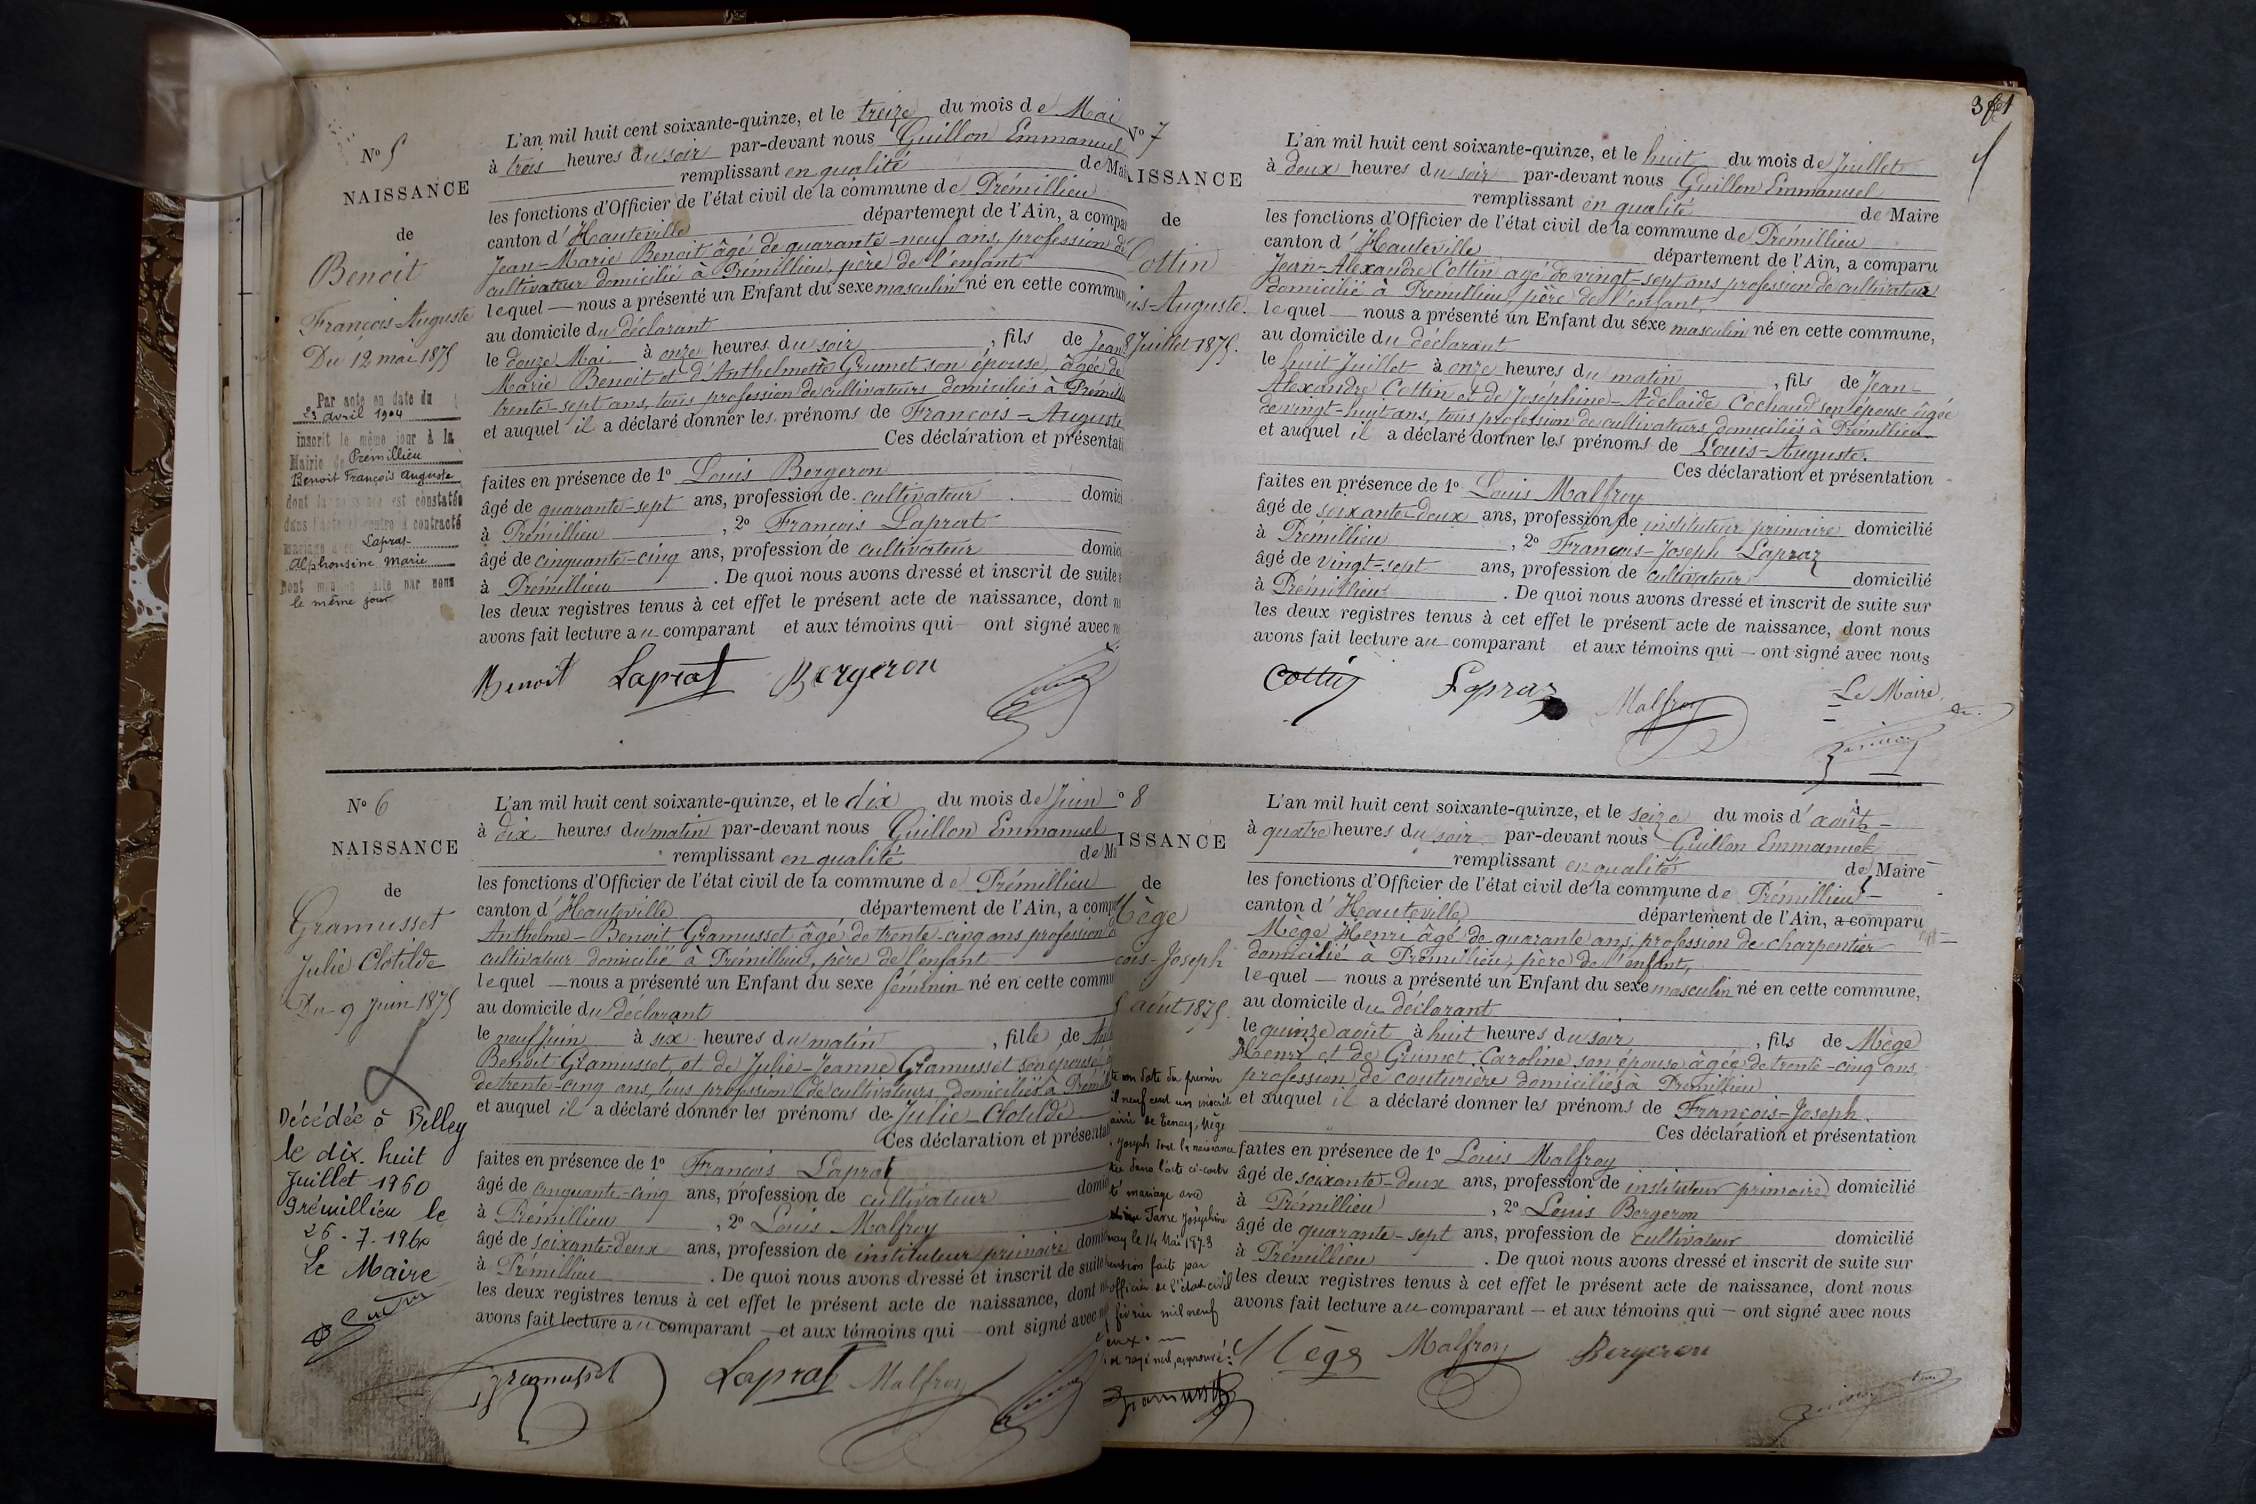 N° 5
NAISSANCE
de
Benoit
François-Auguste
Du 12 mai 1875
Par acte en date du
23 avril 1904
inscrit le même jour à la
Mairie de Prémillieu
Benoit François Auguste
dont la naissance est constatée
dans l'acte ci-contre a contracté
mariage avec Lapras
Alphonsine Marie
le même jour
L'an mil huit cent soixante-quinze, et le treize du mois de Mai
à trois heures du soir par-devant nous Guillon Emmanuel
remplissant en qualité de Mai
les fonctions d'Officier de l'état civil de la commune de Prémillieu
canton d'Hauteville département de l'Ain, a compa
Jean-Marie Benoit âgé de quarante-neuf ans, profession de
cultivateur domicilié à Prémillieu, père de l'enfant
lequel — nous a présenté un Enfant du sexe masculin né en cette commun
au domicile du déclarant
le douze Mai à onze heures du soir, fils de Jean
Marie Benoit et d'Anthelmette Grumet son épouse, âgée de
trente-sept ans, tous profession de cultivateurs domiciliés à Prémill
et auquel il a déclaré donner les prénoms de François-Auguste
Ces déclaration et présentati
faites en présence de 1° Louis Bergeron
âgé de quarante-sept ans, profession de cultivateur domici
à Prémillieu, 2° François Laprat
âgé de cinquante-cinq ans, profession de cultivateur domici
à Prémillieu. De quoi nous avons dressé et inscrit de suite
les deux registres tenus à cet effet le présent acte de naissance, dont n
avons fait lecture au comparant et aux témoins qui — ont signé avec n
Benoit Laprat Bergeron
N° 6
NAISSANCE
de
Gramusset
Julie Clotilde
Du 9 Juin 1875
Décédée à Belley
le dix-huit
Juillet 1960
Prémillieu le
26-7-1960
Le Maire
L'an mil huit cent soixante-quinze, et le dix du mois de Juin
à dix heures du matin par-devant nous Guillon Emmanuel
remplissant en qualité de Ma
les fonctions d'Officier de l'état civil de la commune de Prémillieu
canton d'Hauteville département de l'Ain, a comp
Anthelme-Benoit Gramusset âgé de trente-cinq ans profession d
cultivateur domicilié à Prémillieu, père de l'enfant
lequel — nous a présenté un Enfant du sexe féminin né en cette commu
au domicile du déclarant
le neuf Juin à six heures du matin, fille de Anth
Benoit Gramusset, et de Julie-Jeanne Gramusset son épouse
de trente-cinq ans, tous profession de cultivateurs domiciliés à Prémill
et auquel il a déclaré donner les prénoms de Julie-Clotilde
Ces déclaration et présentat
faites en présence de 1° François Laprat
âgé de cinquante-cinq ans, profession de cultivateur domici
à Prémillieu, 2° Louis Malfroy
âgé de soixante-deux ans, profession de instituteur primaire domi
à Prémillieu. De quoi nous avons dressé et inscrit de suite
les deux registres tenus à cet effet le présent acte de naissance, dont n
avons fait lecture au comparant — et aux témoins qui — ont signé avec
Gramusset Laprat Malfroy
361
N° 7
AISSANCE
de
Cottin
is-Auguste.
8 Juillet 1875.
L'an mil huit cent soixante-quinze, et le huit du mois de Juillet
à deux heures du soir par-devant nous Guillon Emmanuel
remplissant en qualité de Maire
les fonctions d'Officier de l'état civil de la commune de Prémillieu
canton d'Hauteville département de l'Ain, a comparu
Jean-Alexandre Cottin âgé de vingt-sept ans profession de cultivateur
domicilié à Prémillieu, père de l'enfant,
lequel — nous a présenté un Enfant du sexe masculin né en cette commune,
au domicile du déclarant
le huit Juillet à onze heures du matin, fils de Jean-
Alexandre Cottin et de Joséphine-Adelaïde Cochaud son épouse âgée
de vingt-huit ans, tous profession de cultivateurs domiciliés à Prémillieu
et auquel il a déclaré donner les prénoms de Louis-Auguste.
Ces déclaration et présentation
faites en présence de 1° Louis Malfroy
âgé de soixante-deux ans, profession de instituteur primaire domicilié
à Prémillieu, 2° François-Joseph Lapraz
âgé de vingt-sept ans, profession de cultivateur domicilié
à Prémillieu. De quoi nous avons dressé et inscrit de suite sur
les deux registres tenus à cet effet le présent acte de naissance, dont nous
avons fait lecture au comparant et aux témoins qui — ont signé avec nous
Cottin Lapraz Malfroy Le Maire
° 8
ISSANCE
de
Mège
çois-Joseph
5 août 1875.
te en date du premier
il neuf cent un inscrit
airie de Tenay, Mège
Joseph dont la naissance
tée dans l'acte ci-contre
té mariage avec
Favre Joséphine
nay le 14 Mai 1873
officier de l'état civil
février mil neuf
L'an mil huit cent soixante-quinze, et le seize du mois d'août
à quatre heures du soir par-devant nous Guillon Emmanuel
remplissant en qualité de Maire
les fonctions d'Officier de l'état civil de la commune de Prémillieu
canton d'Hauteville département de l'Ain, a comparu
Mège Henri âgé de quarante ans, profession de charpentier
domicilié à Prémillieu, père de l'enfant,
lequel — nous a présenté un Enfant du sexe masculin né en cette commune,
au domicile du déclarant
le quinze août à huit heures du soir, fils de Mège
Henri et de Grumet Caroline son épouse âgée de trente-cinq ans
profession de couturière domiciliés à Prémillieu
et auquel il a déclaré donner les prénoms de François-Joseph.
Ces déclaration et présentation
faites en présence de 1° Louis Malfroy
âgé de soixante-deux ans, profession de instituteur primaire domicilié
à Prémillieu, 2° Louis Bergeron
âgé de quarante-sept ans, profession de cultivateur domicilié
à Prémillieu. De quoi nous avons dressé et inscrit de suite sur
les deux registres tenus à cet effet le présent acte de naissance, dont nous
avons fait lecture au comparant — et aux témoins qui — ont signé avec nous
Mège Malfroy Bergeron